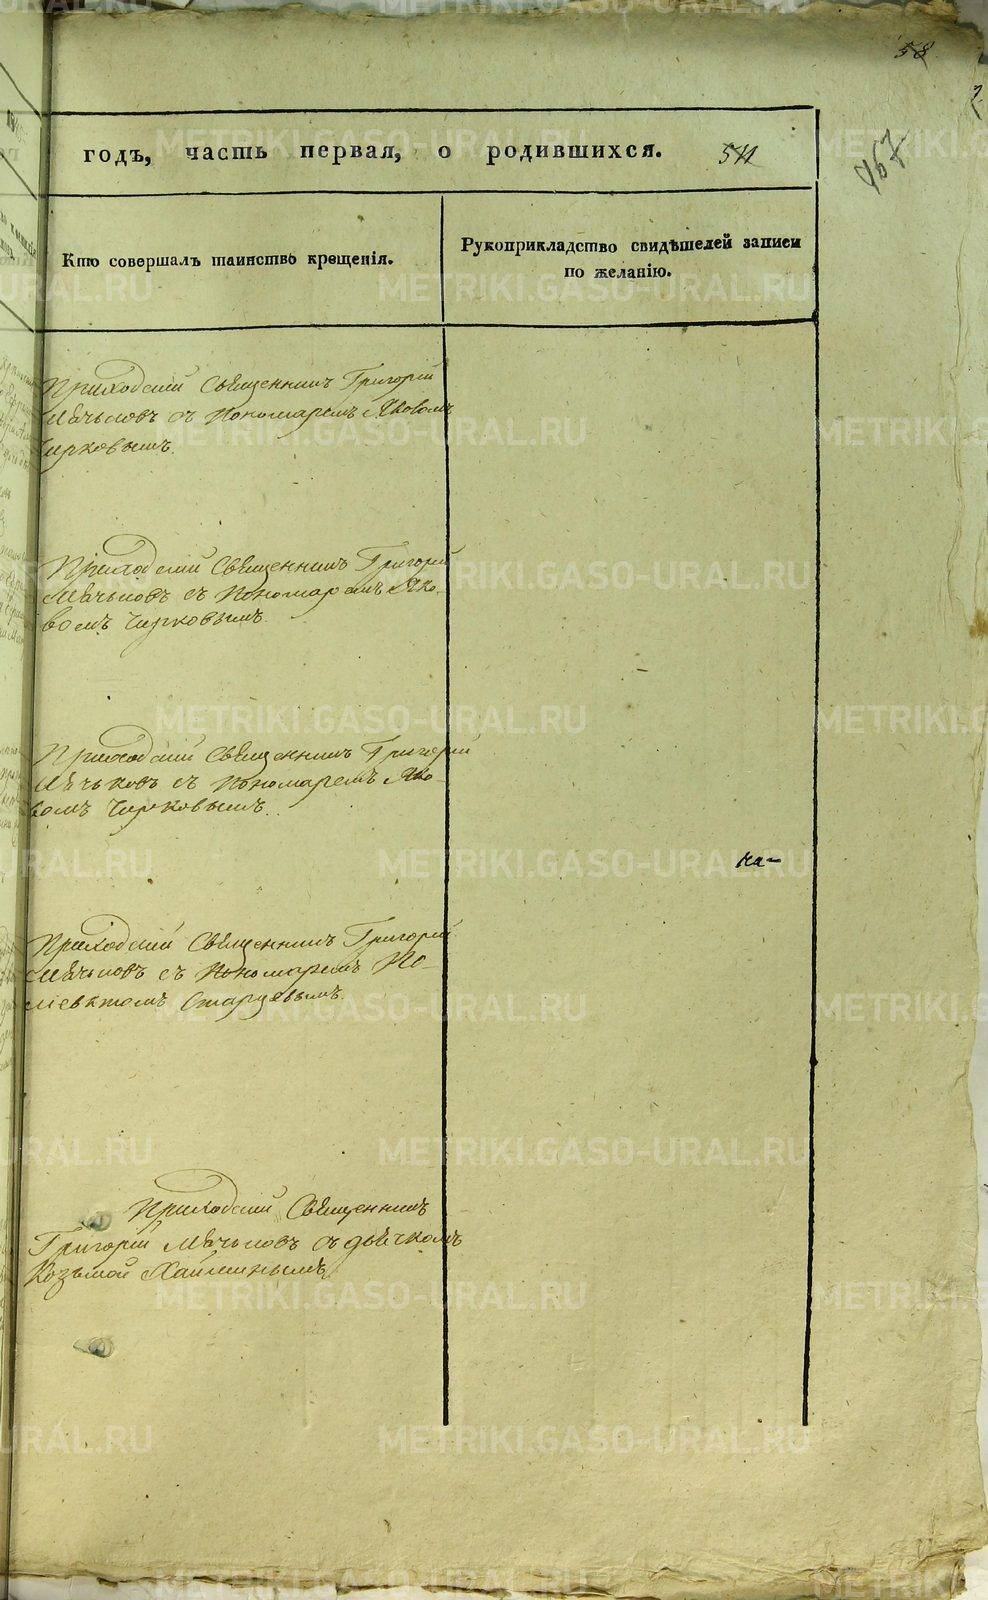 58
годъ, часть первая, о родившихся.
467
Кто совершалъ таинство крещенія.
Рукоприкладство свидѣтелей записи
по желанію.
Приходскій Священникъ Григорій
Мячьковъ съ Пономаремъ Яковомъ
Чирковымъ.
Приходскій Священникъ Григорій
Мячьковъ съ Пономаремъ Яко-
вомъ Чирковымъ.
Приходскій Священникъ Григорій
Мячьковъ съ Пономаремъ Яко-
вомъ Чирковымъ.
на-
Приходскій Священникъ Григорій
Мячьковъ съ Пономаремъ
Старцевымъ.
Приходскій Священникъ
Григорій Мячьковъ съ дьячкомъ
Козьмой
METRIKI.GASO-URAL.RU